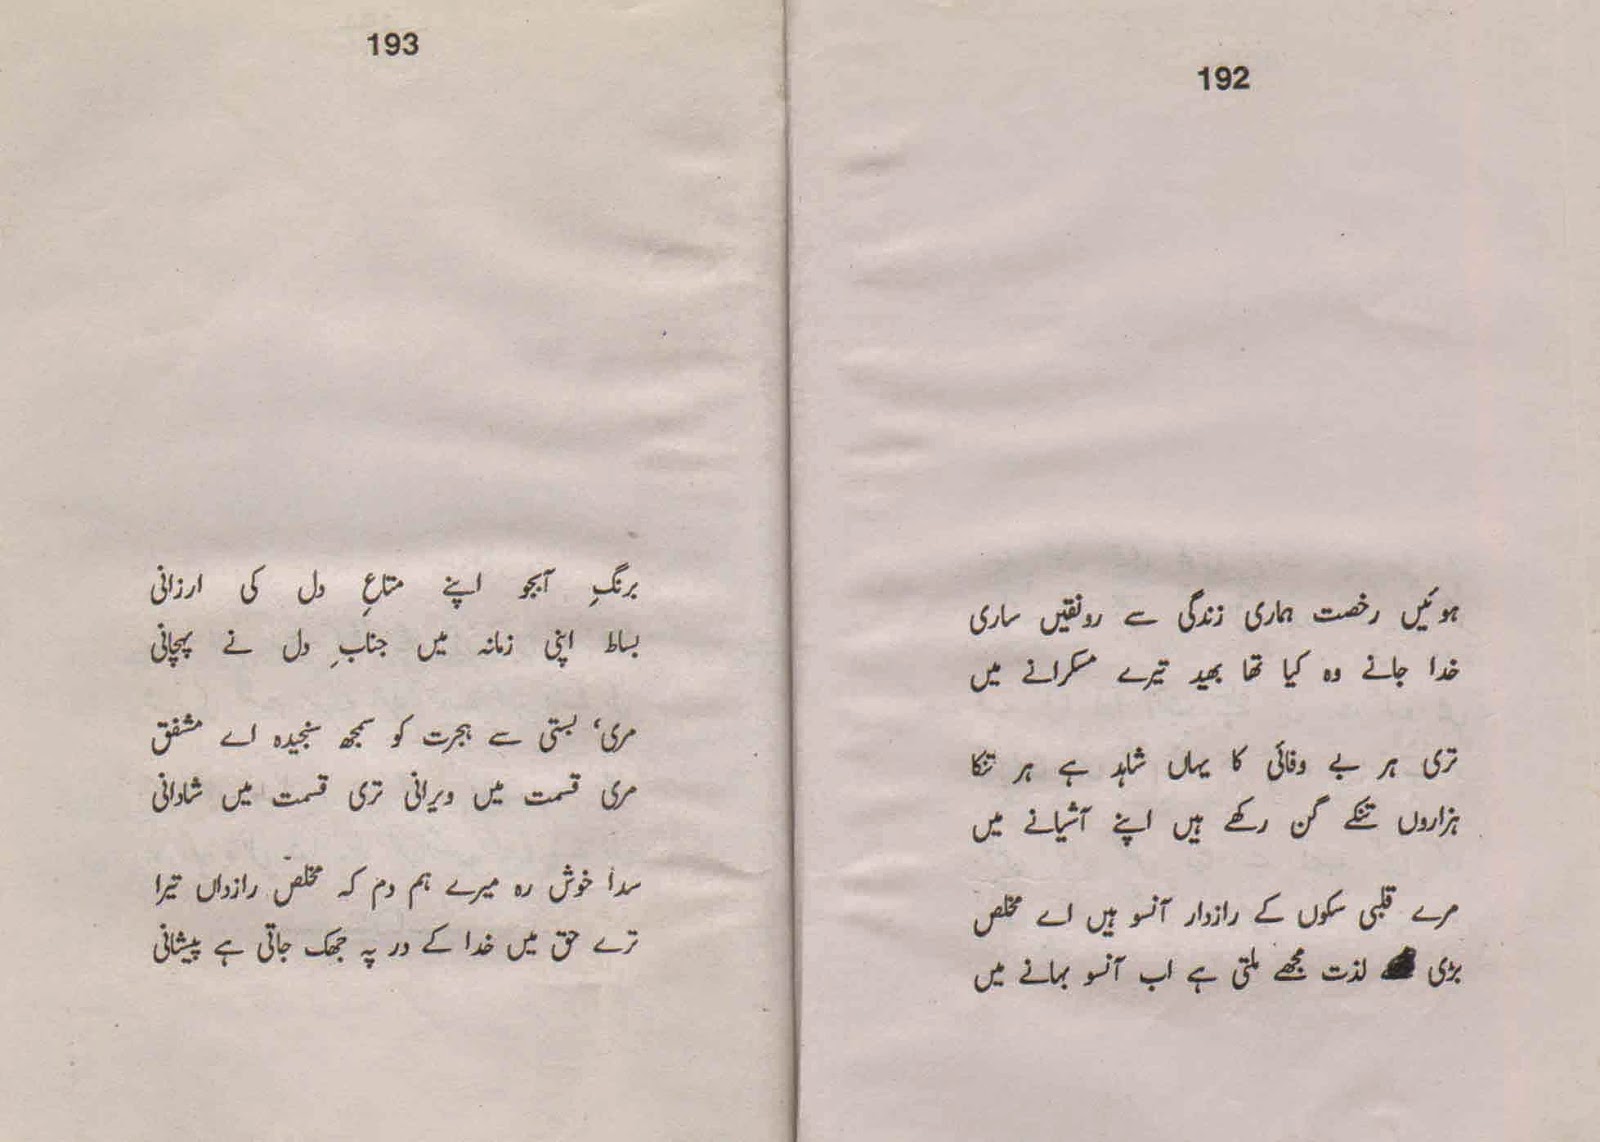 192
ہوئیں رخصت ہماری زندگی سے رونقیں ساری
خدا جانے وہ کیا تھا بھید تیرے مسکرانے میں
تری ہر بے وفائی کا یہاں شاہد ہے ہر تنکا
ہزاروں تنکے گن رکھے ہیں اپنے آشیانے میں
مرے قلبی سکوں کے رازدار آنسو ہیں اے مخلص
بڑی لذت مجھے ملتی ہے اب آنسو بہانے میں
193
برنگِ آبجو اپنے متاعِ دل کی ارزانی
بساط اپنی زمانہ میں جنابِ دل نے پہچانی
مری، بستی سے ہجرت کو سمجھ سنجیدہ اے مشفق
مری قسمت میں ویرانی تری قسمت میں شادانی
سدا خوش رہ میرے ہم دم کہ مخلص رازداں تیرا
ترے حق میں خدا کے در پہ جھک جاتی ہے پیشانی